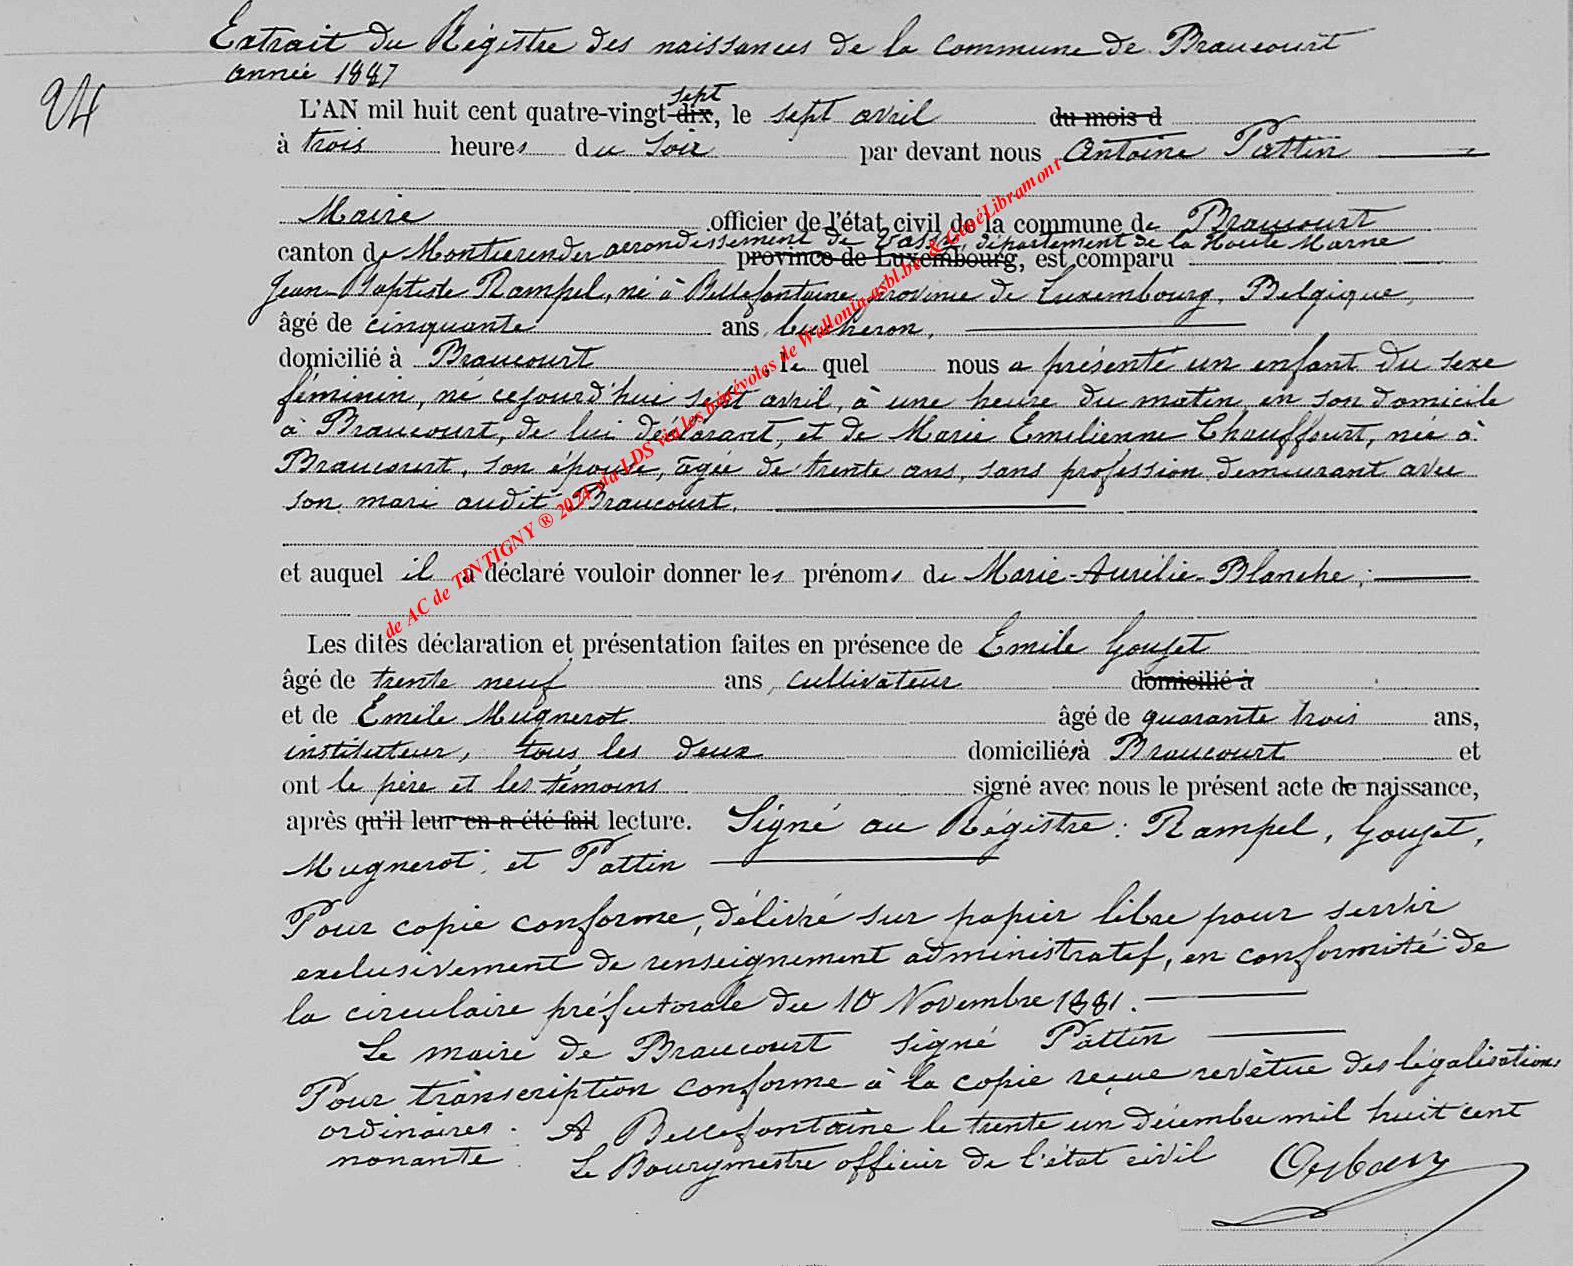 Extrait du Régistre des naissances de la commune de Braucourt
année 1887
24
sept
L'AN mil huit cent quatre-vingt-dix, le sept avril du mois d
à trois heures du soir par devant nous Antoine Pattin
Maire officier de l'état civil de la commune de Braucourt
arrondissement de Vassy, département de la Haute Marne
canton de Montierender province de Luxembourg, est comparu
Jean-Baptiste Rampel, né à Bellefontaine, province de Luxembourg, Belgique,
âgé de cinquante ans, bucheron,
domicilié à Braucourt, le quel nous a présenté un enfant du sexe
féminin, né cejourd'hui sept avril, à une heure du matin, en son domicile
à Braucourt, de lui déclarant, et de Marie Emilienne Chauffourt, née à
Braucourt, son épouse, âgée de trente ans, sans profession, demeurant avec
son mari audit Braucourt.
et auquel il a déclaré vouloir donner les prénoms de Marie-Aurélie-Blanche;
Les dites déclaration et présentation faites en présence de Emile Goujet
âgé de trente neuf ans, cultivateur domicilié à
et de Emile Mugnerot âgé de quarante trois ans,
instituteur, tous les deux domiciliés à Braucourt et
ont le père et les témoins signé avec nous le présent acte de naissance,
après qu'il leur en a été fait lecture. Signé au Régistre: Rampel, Goujet,
Mugnerot, et Pattin
Pour copie conforme, délivré sur papier libre pour servir
exclusivement de renseignement administratif, en conformité de
la circulaire préfectorale du 10 Novembre 1881.
Le maire de Braucourt signé Pattin
Pour transcription conforme à la copie reçue revêtue des légalisations
ordinaires. A Bellefontaine le trente un décembre mil huit cent
nonante. Le Bourgmestre officier de l'état civil
de AC de TINTIGNY ® 2024 via LDS via les bénévoles de Wallonia-asbl.be & GénéLibramont